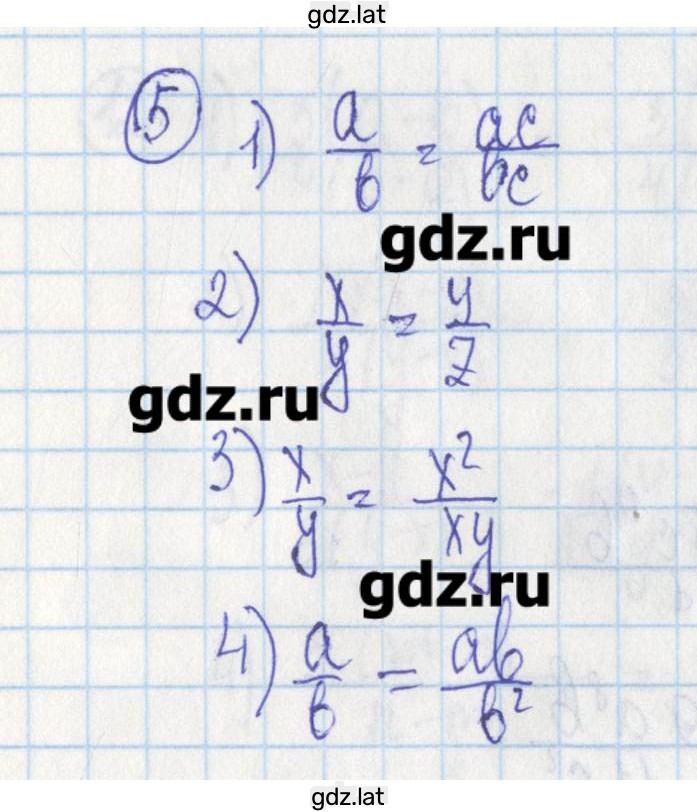 gdz.lat
5 1) a/b = ac/bc
gdz.ru
2) x/y = y/z
gdz.ru
3) x/y = x²/xy
gdz.ru
4) a/b = ab/b²
gdz.lat